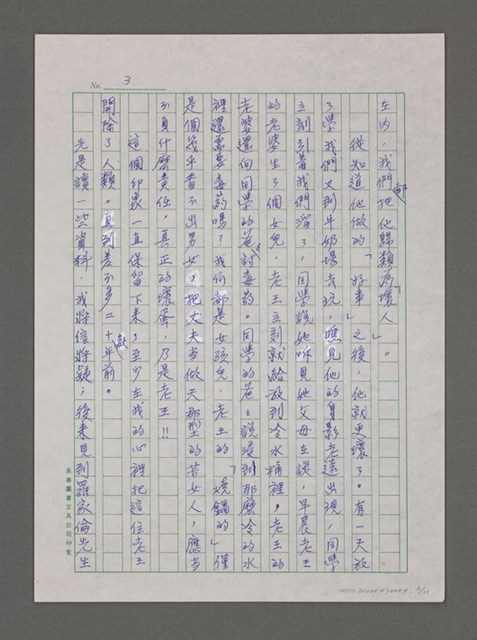 No. 3
在內，我們都把他歸類為「壞人」。
從知道他做的「好事」之後，他就更壞了。有一天放
了學，我們又到牛奶場去玩，瞧見他的身影老遠出現，同學
立刻引著我們溜了，同學說她聽見她父母在談，早晨老王
的老婆生了個女兒，老王立刻就給放到冷水桶裡，老王的
老婆還向同學的爸爸討毒藥。同學的爸爸說浸到那麼冷的水
裡還需要毒藥嗎？我們都是女孩兒，老王的「燒鍋的」僅
是個幾乎看不出男女，把丈夫當做天那型的苦女人，應當
不負什麼責任，真正的壞蛋，乃是老王!!
這個印象一直保留下來，至少在我的心裡把這位老王
開除了人類。直到差不多二十年前。
先是讀一些資料，我將信將疑；後來見到羅家倫先生
長興圖書文具公司印製